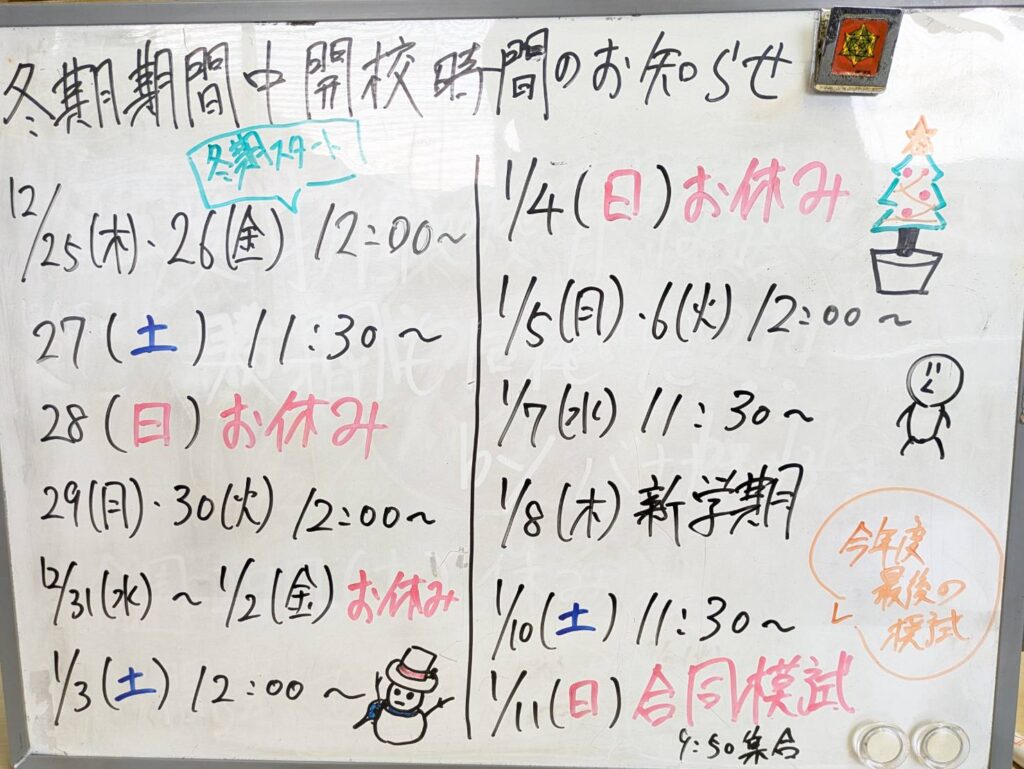 冬期期間中開校時間のお知らせ
冬期スタート
12/25(木)・26(金) 12:00～
27(土) 11:30～
28(日)お休み
29(月)・30(火) 12:00～
12/31(水)～1/2(金)お休み
1/3(土) 12:00～
1/4(日)お休み
1/5(月)・6(火) 12:00～
1/7(水) 11:30～
1/8(木)新学期
1/10(土) 11:30～
1/11(日)合同模試
9:50集合
今年度
最後の
模試